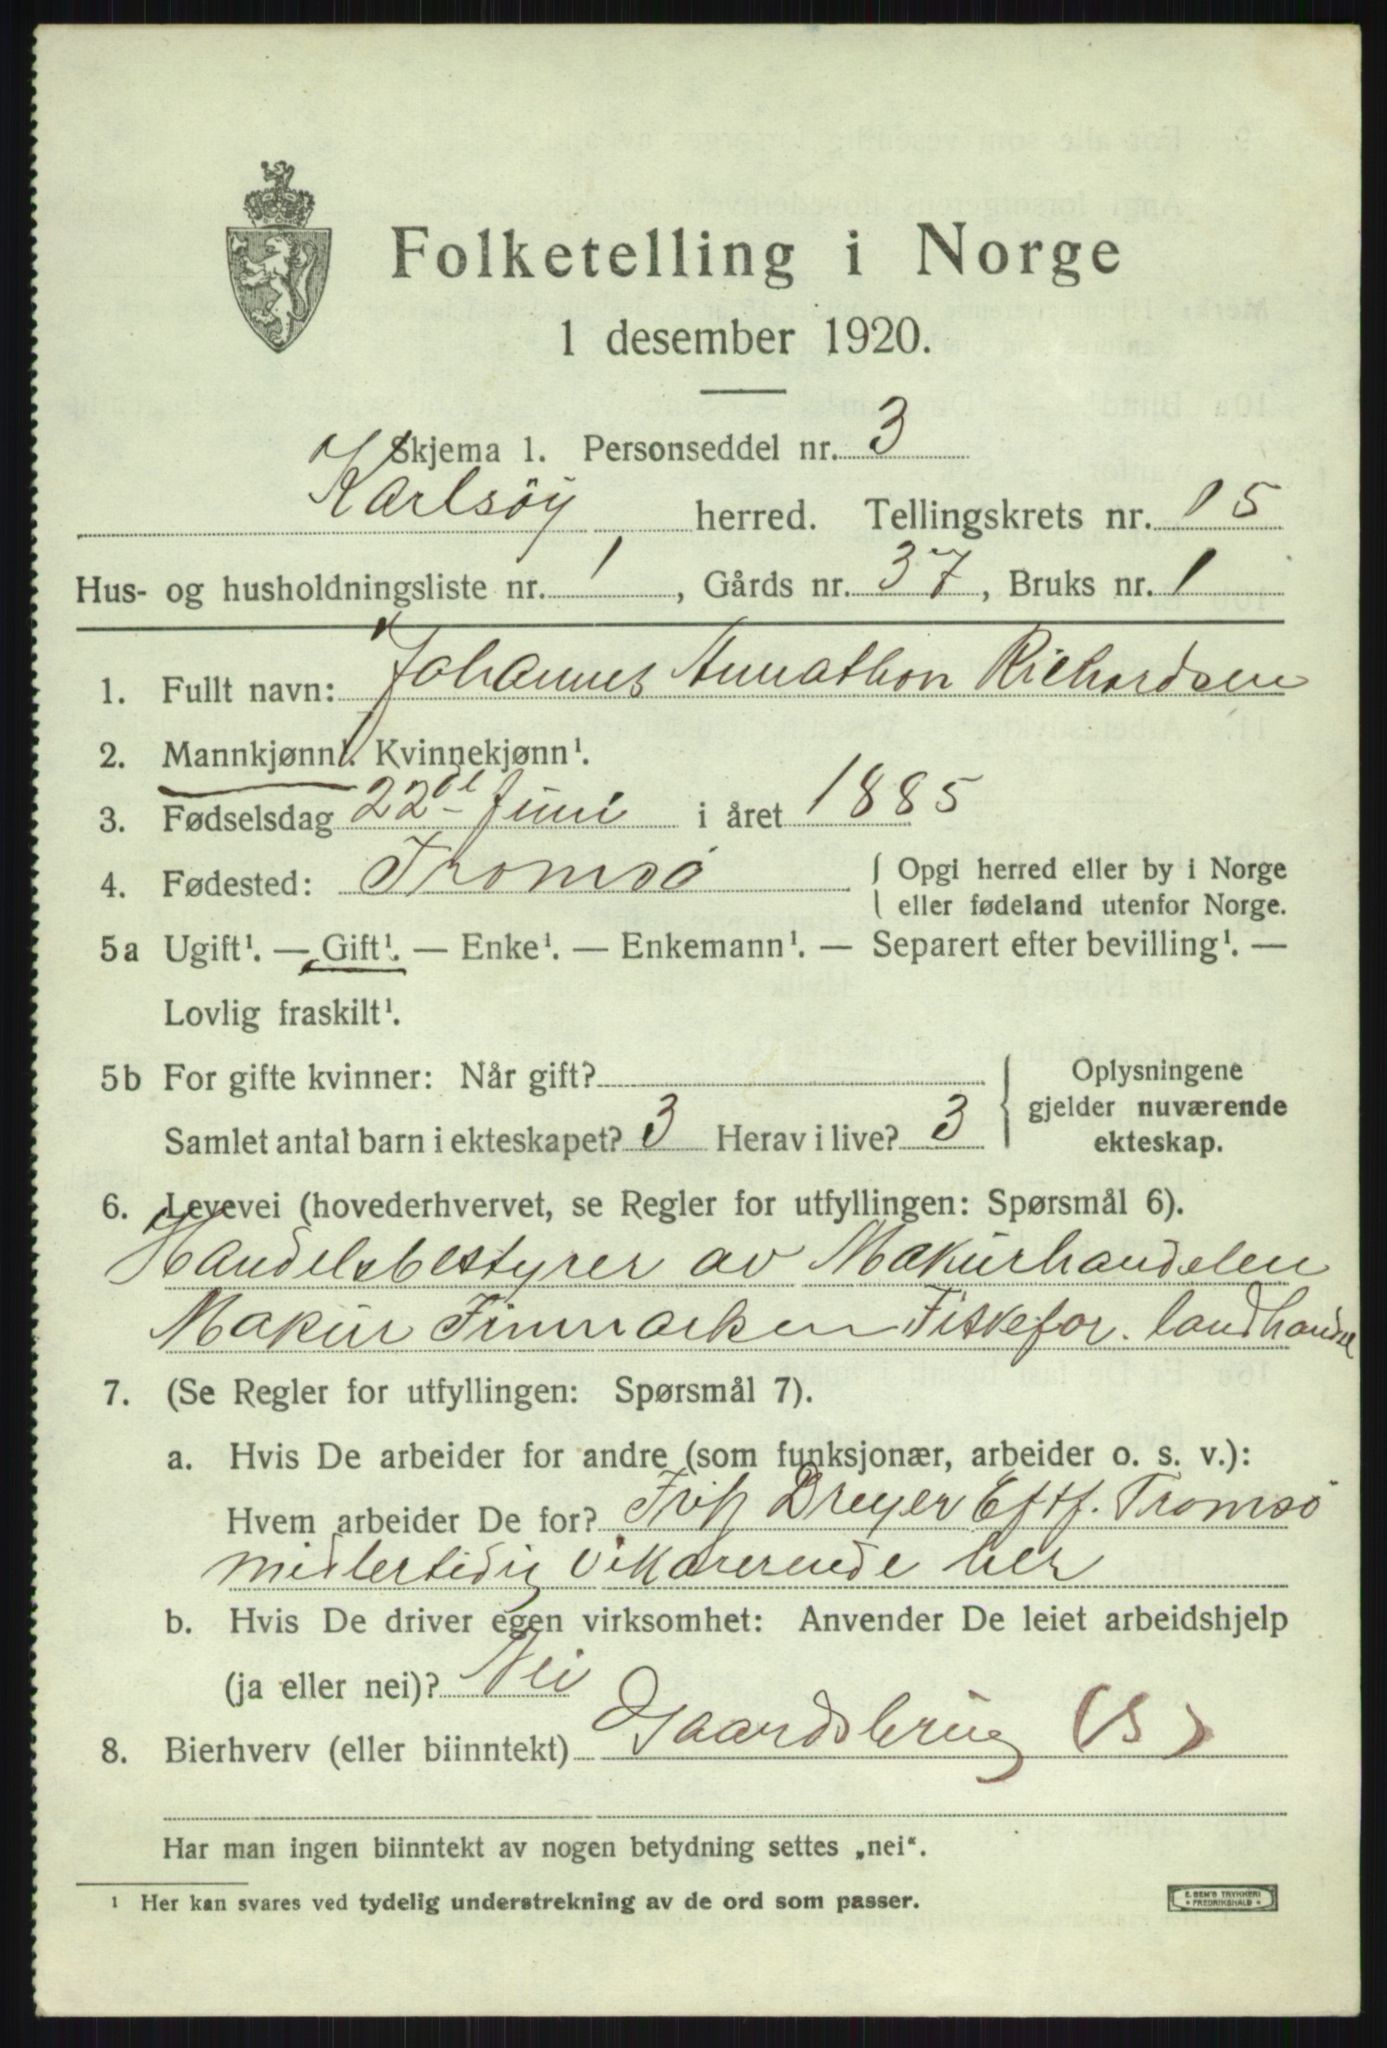 Folketelling i Norge
1 desember 1920.
Skjema 1. Personseddel nr. 3
Karlsøy herred. Tellingskrets nr. 15
Hus- og husholdningsliste nr. 1, Gårds nr. 37, Bruks nr. 1
1. Fullt navn: Johannes Annathon Richardsen
2. Mannkjønn¹. Kvinnekjønn¹.
3. Fødselsdag 22de Juni i året 1885
4. Fødested: Tromsö { Opgi herred eller by i Norge
eller fødeland utenfor Norge.
5a Ugift¹. — Gift¹. — Enke¹. — Enkemann¹. — Separert efter bevilling¹. —
Lovlig fraskilt¹.
5b For gifte kvinner: Når gift? Oplysningene
gjelder nuværende
Samlet antal barn i ekteskapet? 3 Herav i live? 3 ekteskap.
6. Levevei (hovederhvervet, se Regler for utfyllingen: Spørsmål 6).
Handelsbestyrer av Makurhandelen
Makur Finmarken Fiskefor. landhandel
7. (Se Regler for utfyllingen: Spørsmål 7).
a. Hvis De arbeider for andre (som funksjonær, arbeider o. s. v.):
Hvem arbeider De for? Dreyer Eftf. Tromsö
midlertidig vikarerende her
b. Hvis De driver egen virksomhet: Anvender De leiet arbeidshjelp
(ja eller nei)? Nei
8. Bierhverv (eller biinntekt) Gaardsbrug (S)
Har man ingen biinntekt av nogen betydning settes „nei“.
¹ Her kan svares ved tydelig understrekning av de ord som passer.
E. SEM'S TRYKKERI
FREDRIKSHALD